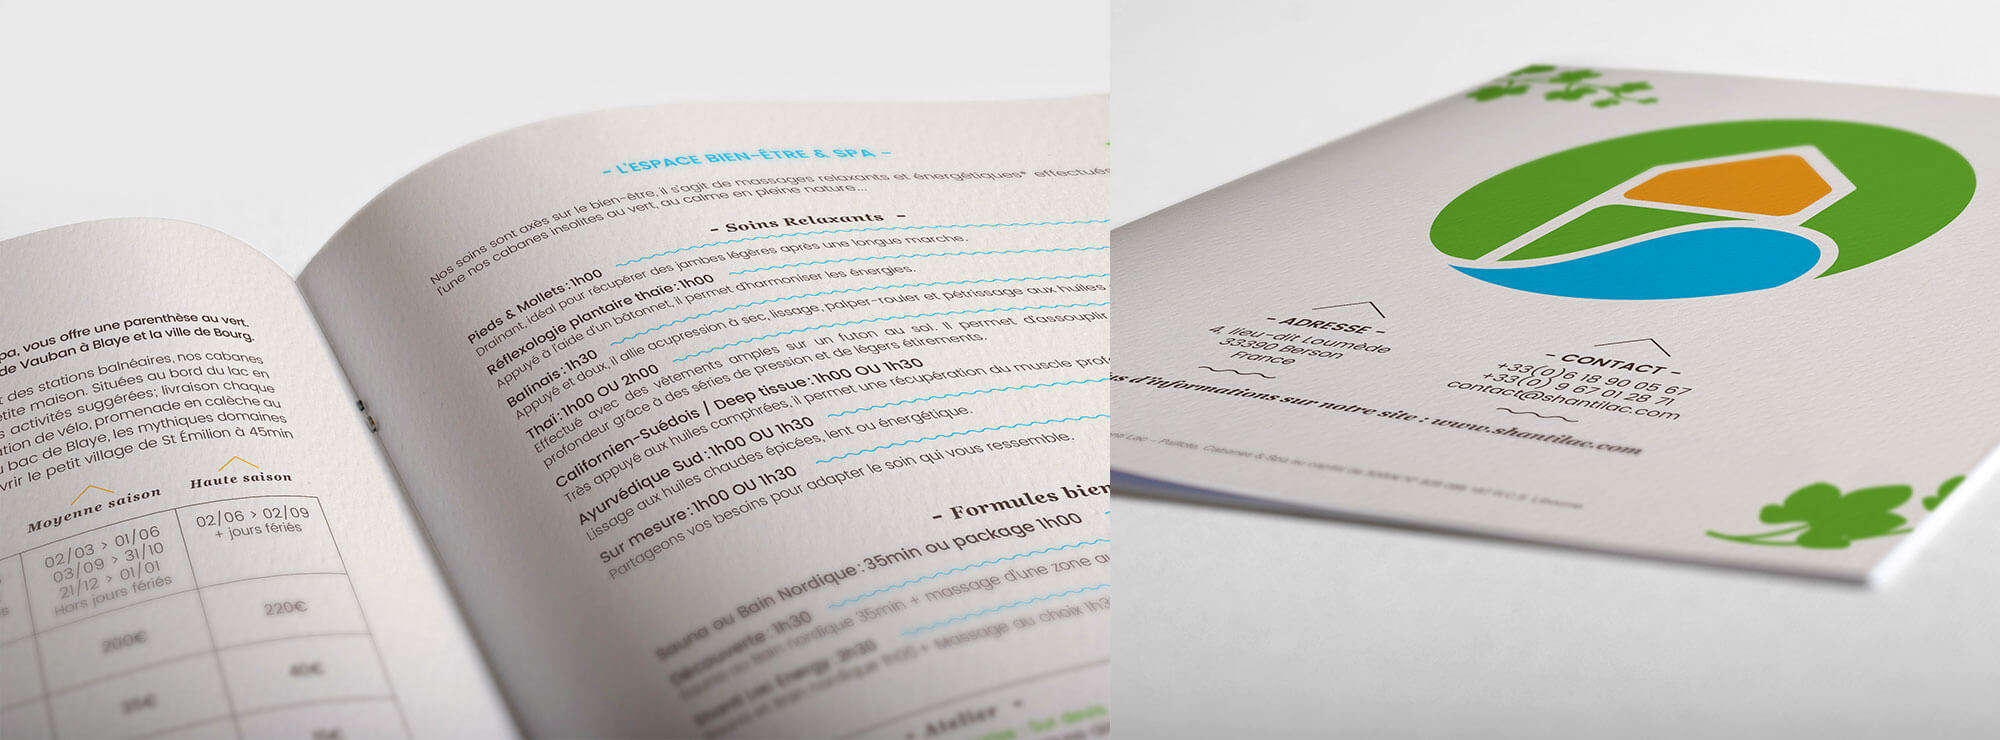 pa, vous offre une parenthèse au vert.
de Vauban à Blaye et la ville de Bourg.
des stations balnéaires, nos cabanes
maison. Situées au bord du lac en
activités suggérées; livraison chaque
de vélo, promenade en calèche au
bac de Blaye, les mythiques domaines
le petit village de St Émilion à 45min
Moyenne saison
Haute saison
02/03 > 01/06
03/09 > 31/10
21/12 > 01/01
Hors jours fériés
02/06 > 02/09
+ jours fériés
200€
220€
40€
- L'ESPACE BIEN-ÊTRE & SPA -
Nos soins sont axés sur le bien-être, il s'agit de massages relaxants et énergétiques* effectués
l'une nos cabanes insolites au vert, au calme en pleine nature...
- Soins Relaxants -
Pieds & Mollets : 1h00
Drainant, idéal pour récupérer des jambes légères après une longue marche.
Réflexologie plantaire thaïe : 1h00
Appuyé à l'aide d'un bâtonnet, il permet d'harmoniser les énergies.
Balinais : 1h30
Appuyé et doux, il allie acupression à sec, lissage, palper-rouler et pétrissage aux huiles
Thaï : 1h00 OU 2h00
Effectué avec des vêtements amples sur un futon au sol. Il permet d'assouplir
profondeur grâce à des séries de pression et de légers étirements.
Californien-Suédois / Deep tissue : 1h00 OU 1h30
Très appuyé aux huiles camphrées, il permet une récupération du muscle prof
Ayurvédique Sud : 1h00 OU 1h30
Lissage aux huiles chaudes épicées, lent ou énergétique.
Sur mesure : 1h00 OU 1h30
Partageons vos besoins pour adapter le soin qui vous ressemble.
- Formules bien
Sauna ou Bain Nordique : 35min ou package 1h00
Découverte : 1h30
Sauna ou Bain nordique 35min + massage d'une zone au
Shanti Lac Energy : 2h30
Sauna et bain nordique 1h00 + Massage au choix 1h3
- Atelier -
- ADRESSE -
4, lieu-dit Loumède
33390 Berson
France
- CONTACT -
+33(0)6 18 90 05 67
+33(0) 9 67 01 28 71
contact@shantilac.com
d'informations sur notre site : www.shantilac.com
Lac - Paillote, Cabanes & Spa au capital de